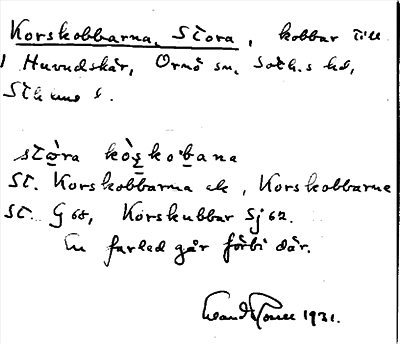 Korskobbarna, Stora, kobbar till
Huvudskär, Ornö sn, Soth.s hd,
Sthlms l.
stꙍ̀ra kòs̨koʹbana
St. Korskobbarna ek, Korskobbarne
St. G 68, Korskubbar Sj 62.
En farled går förbi där.
1931.